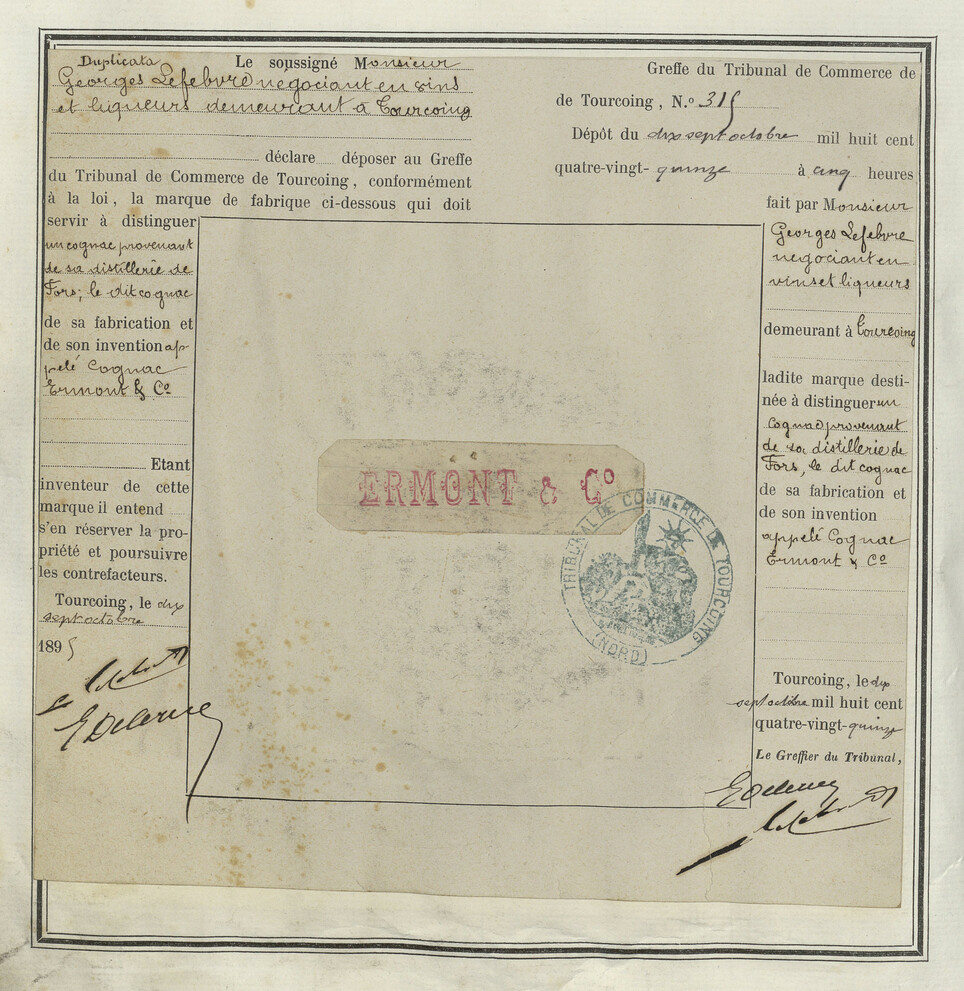 Duplicata Le soussigné Monsieur
Georges Lefebvre négociant en vins
et liqueurs demeurant à Tourcoing
déclare déposer au Greffe
du Tribunal de Commerce de Tourcoing, conformément
à la loi, la marque de fabrique ci-dessous qui doit
servir à distinguer
un cognac provenant
de sa distillerie de
Fors; le dit cognac
de sa fabrication et
de son invention ap-
pelé Cognac
Ermont & Cº
Etant
inventeur de cette
marque il entend
s'en réserver la pro-
priété et poursuivre
les contrefacteurs.
Tourcoing, le dix
sept octobre
1895
ERMONT & Cº
TRIBUNAL DE COMMERCE DE TOURCOING
(NORD)
Greffe du Tribunal de Commerce de
de Tourcoing, N.º 315
Dépôt du dix sept octobre mil huit cent
quatre-vingt-quinze à cinq heures
fait par Monsieur
Georges Lefebvre
negociant en
vins et liqueurs
demeurant à Tourcoing
ladite marque desti-
née à distinguer un
Cognac provenant
de sa distillerie de
Fors, le dit cognac
de sa fabrication et
de son invention
appelé Cognac
Ermont & Cº
Tourcoing, le dix
sept octobre mil huit cent
quatre-vingt-quinze
Le Greffier du Tribunal,